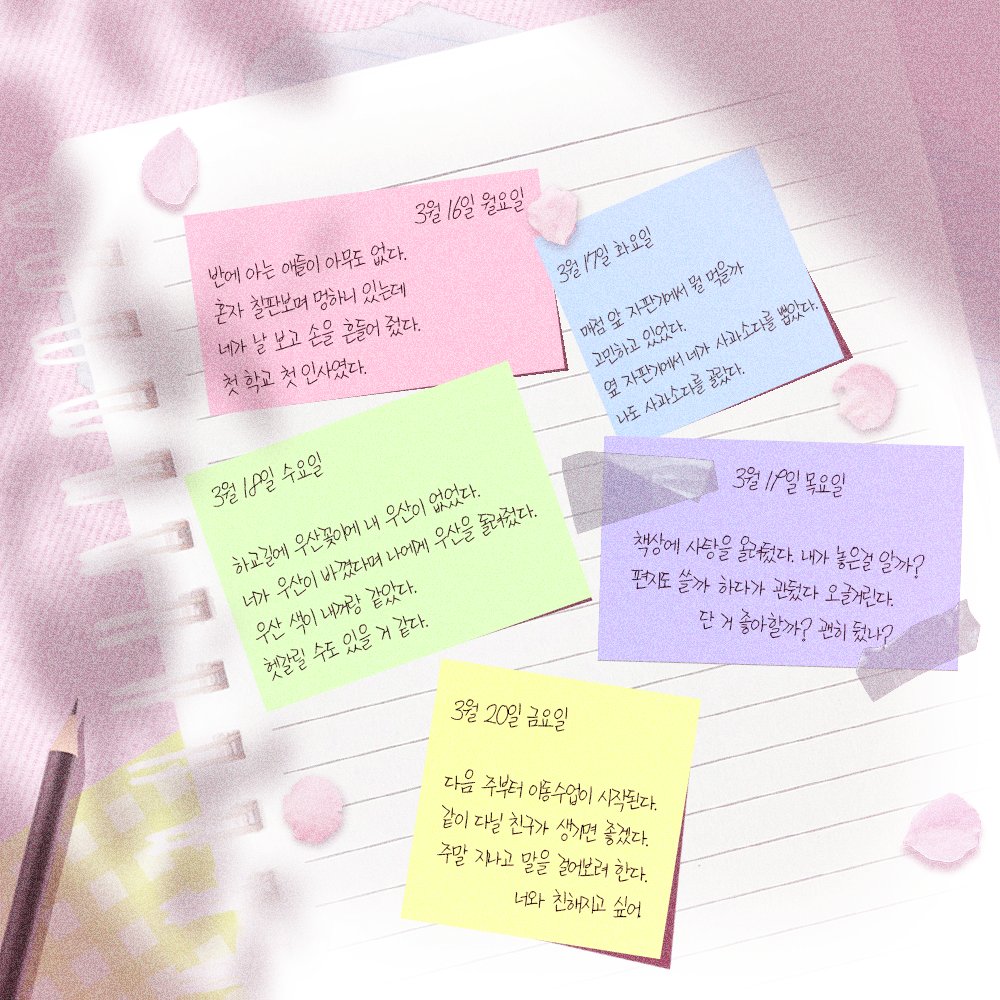 3월 16일 월요일
반에 아는 애들이 아무도 없다.
혼자 칠판보며 멍하니 있는데
네가 날 보고 손을 흔들어 줬다.
첫 학교 첫 인사였다.
3월 17일 화요일
매점 앞 자판기에서 뭘 먹을까
고민하고 있었다.
옆 자판기에서 네가 사과소다를 뽑았다.
나도 사과소다를 골랐다.
3월 18일 수요일
하교길에 우산꽂이에 내 우산이 없었다.
너가 우산이 바꼈다며 나에게 우산을 돌려줬다.
우산 색이 내꺼랑 같았다.
헷갈릴 수도 있을 거 같다.
3월 19일 목요일
책상에 사탕을 올려뒀다. 내가 놓은걸 알까?
편지도 쓸까 하다가 관뒀다 오글거린다.
단 거 좋아할까? 괜히 뒀나?
3월 20일 금요일
다음 주부터 이동수업이 시작된다.
같이 다닐 친구가 생기면 좋겠다.
주말 지나고 말을 걸어보려 한다.
너와 친해지고 싶어